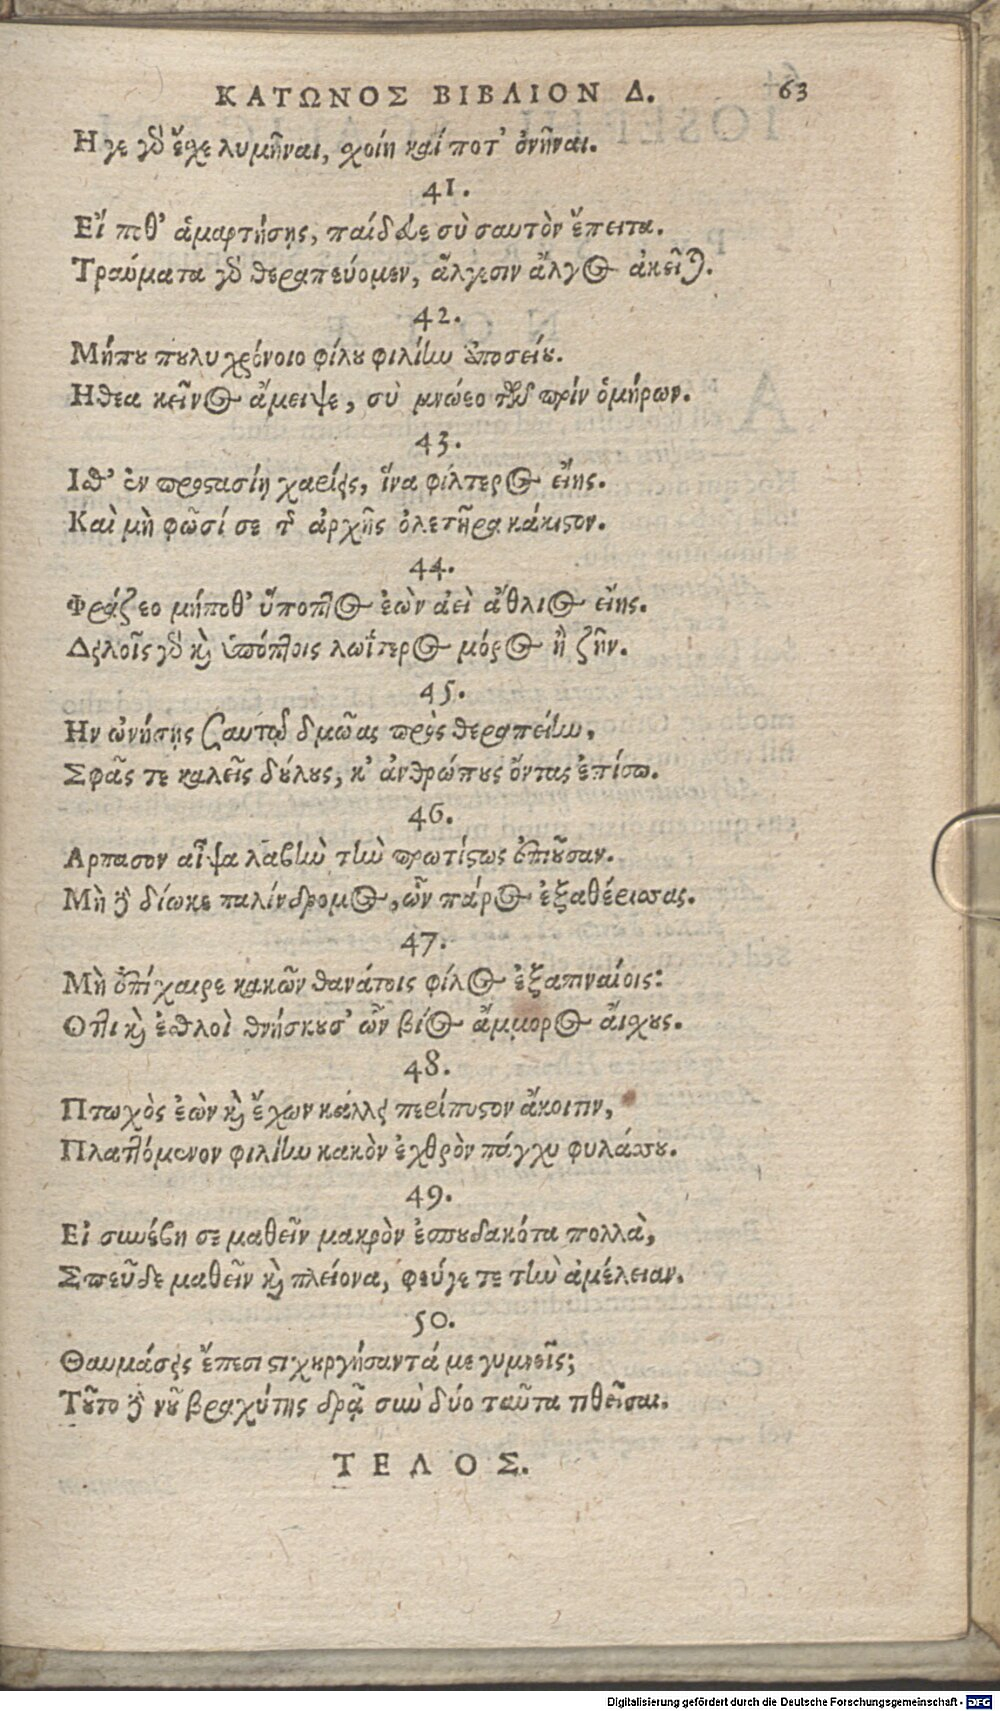 ΚΑΤΩΝΟΣ ΒΙΒΛΙΟΝ Δ. 63
Η γε γὸ ἔχε λυμῆναι, χοίη καί ποτ' ὀνῆναι.
41.
Εἴ ποθ' ἁμαρτήσῃς, παίδευε σὺ σαυτὸν ἔπειτα.
Τραύματα γὸ θεραπεύομεν, ἄλγεσιν ἄλγος ἀκεῖται.
42.
Μήπου πουλυχρόνοιο φίλου φιλίην ἀποσείου.
Ηθεα κεῖνος ἄμειψε, σὺ μνώεο τῶν πρὶν ὁμήρων.
43.
Ισθ' ἐν προστασίῃ χαρίεις, ἵνα φίλτερος εἴης.
Καὶ μὴ φῶσί σε τῆς ἀρχῆς ὀλετῆρα κάκιστον.
44.
Φράζεο μήποθ' ὕποπτος ἐὼν ἀεὶ ἄθλιος εἴης.
Δειλοῖς γὸ καὶ ὑπόπτοις λωΐτερος μόρος ἢ ζῆν.
45.
Ην ὠνήσῃς σαυτῷ δμῶας πρὸς θεραπείην,
Σφᾶς τε καλεῖς δούλους, κ' ἀνθρώπους ὄντας ἐπίσω.
46.
Αρπασον αἶψα λαβὴν τὴν πρωτίστως ἐπιοῦσαν.
Μὴ δὲ δίωκε παλίνδρομος, ὧν πάρος ἐξαθέρισας.
47.
Μὴ ἐπίχαιρε κακῶν θανάτοις φίλος ἐξαπιναίοις:
Οτι καὶ ἐσθλοὶ θνήσκουσ' ὧν βίος ἄμμορος αἴσχους.
48.
Πτωχὸς ἐὼν καὶ ἔχων κάλλει περίπυστον ἄκοιτιν,
Πλαττόμενον φιλίην κακὸν ἐχθρὸν πάγχυ φυλάσσου.
49.
Εἰ συνέβη σε μαθεῖν μακρὸν ἐσπουδακότα πολλὰ,
Σπεῦδε μαθεῖν καὶ πλείονα, φεύγε τε τὴν ἀμέλειαν.
50.
Θαυμάσεις ἔπεσι στιχουργήσαντά με γυμνοῖς;
Τοῦτο δὲ νοῦ βραχύτης δρᾷ σὺν δύο ταῦτα τιθεῖσαι.
ΤΕΛΟΣ.
Digitalisierung gefördert durch die Deutsche Forschungsgemeinschaft - DFG